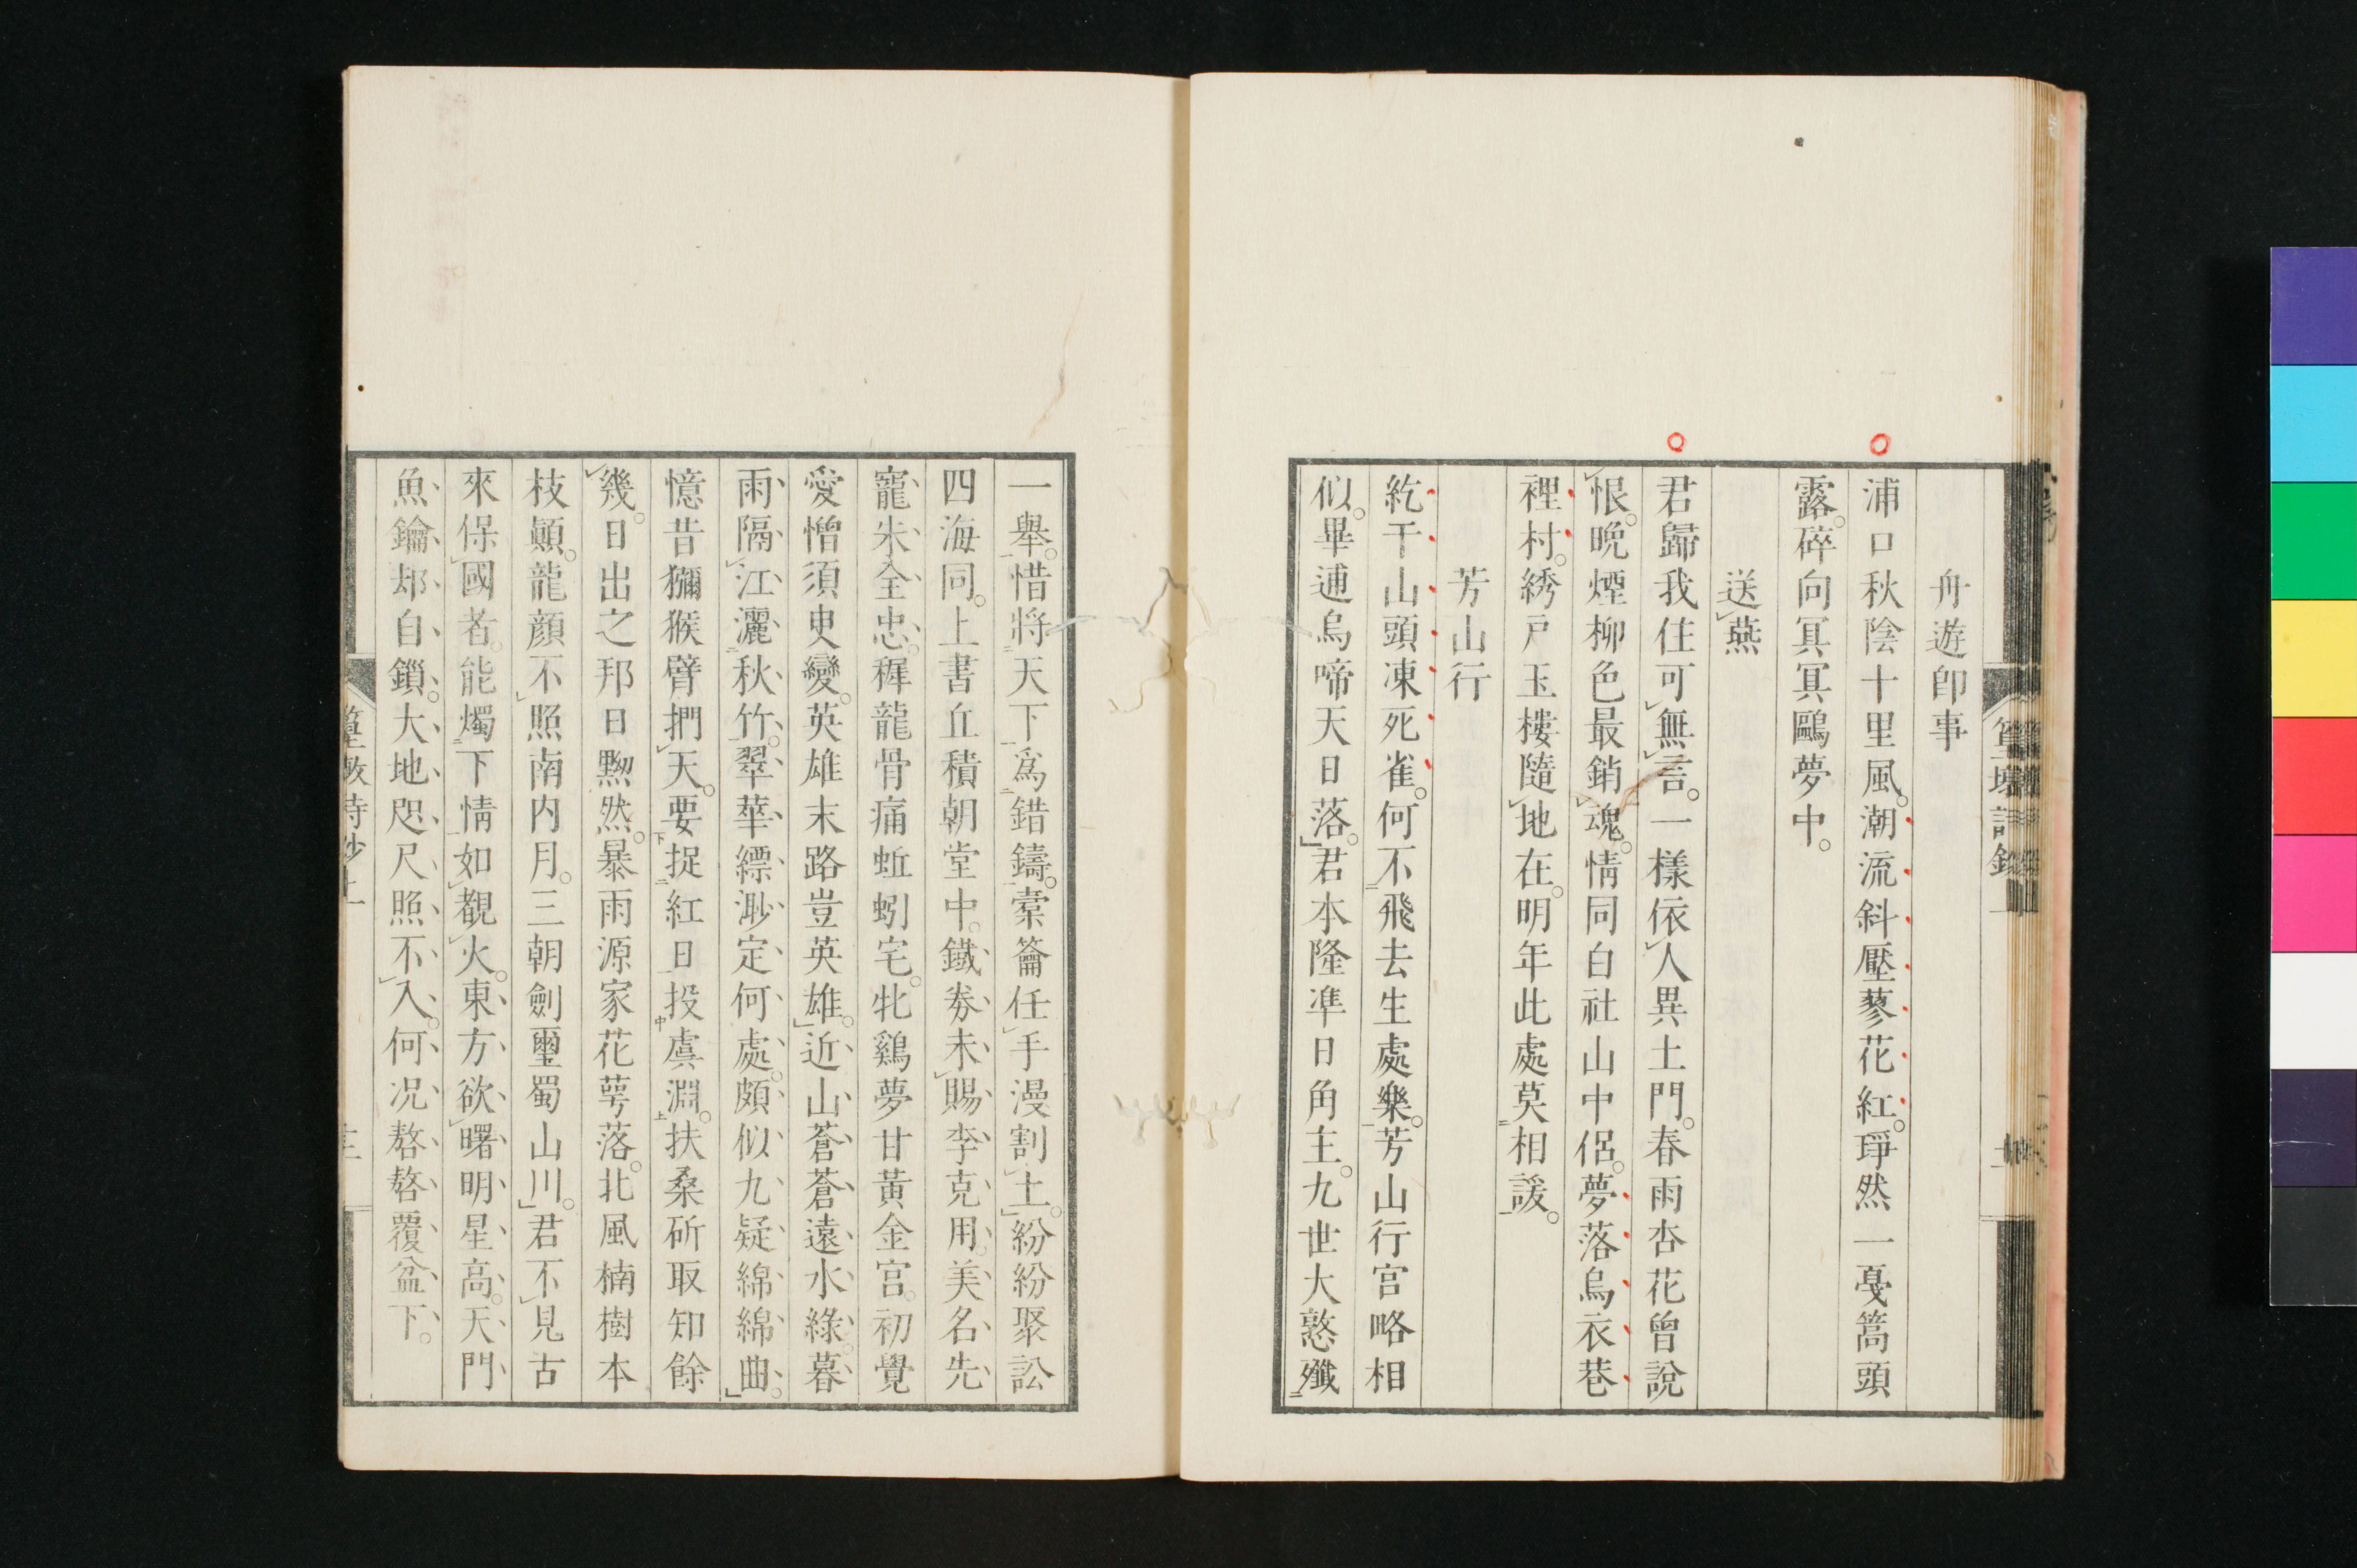 舟遊卽事
浦口秋陰十里風。潮流斜壓蓼花紅。琤然一戞篙頭
露。碎向冥冥鷗夢中。
送燕
君歸我住可無言。一樣依人異土門。春雨杏花曾說
恨。晩煙柳色最銷魂。情同白社山中侶。夢落烏衣巷
裡村。綉戸玉樓隨地在。明年此處莫相諼。
芳山行
紇干山頭凍死雀。何不飛去生處樂。芳山行宮略相
似。畢逋烏啼天日落。君本隆準日角主。九世大憝殲
一擧。惜將天下爲錯鑄。橐籥任手漫割土。紛紛聚訟
四海同。上書丘積朝堂中。鐵劵未賜李克用。美名先
寵朱全忠。穉龍骨痛蚯蚓宅。牝鷄夢甘黃金宮。初覺
愛憎須臾變。英雄末路豈英雄。近山蒼蒼遠水綠。暮
雨隔江灑秋竹。翠華縹渺定何處。頗似九疑綿綿曲。
憶昔獼猴臂捫天。要捉紅日投虞淵。扶桑斫取知餘
幾。日出之邦日黝然。暴雨源家花萼落。北風楠樹本
枝顚。龍顔不照南内月。三朝劍璽蜀山川。君不見古
來保國者。能燭下情如觀火。東方欲曙明星高。天門
魚鑰却自鎖。大地咫尺照不入。何况嗸嗸覆盆下。